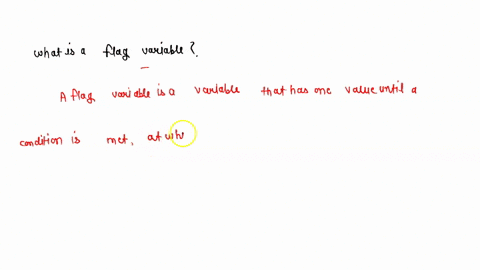 what is a flag variable?.
A flag variable is a variable that has one value until a
condition is met, at wh